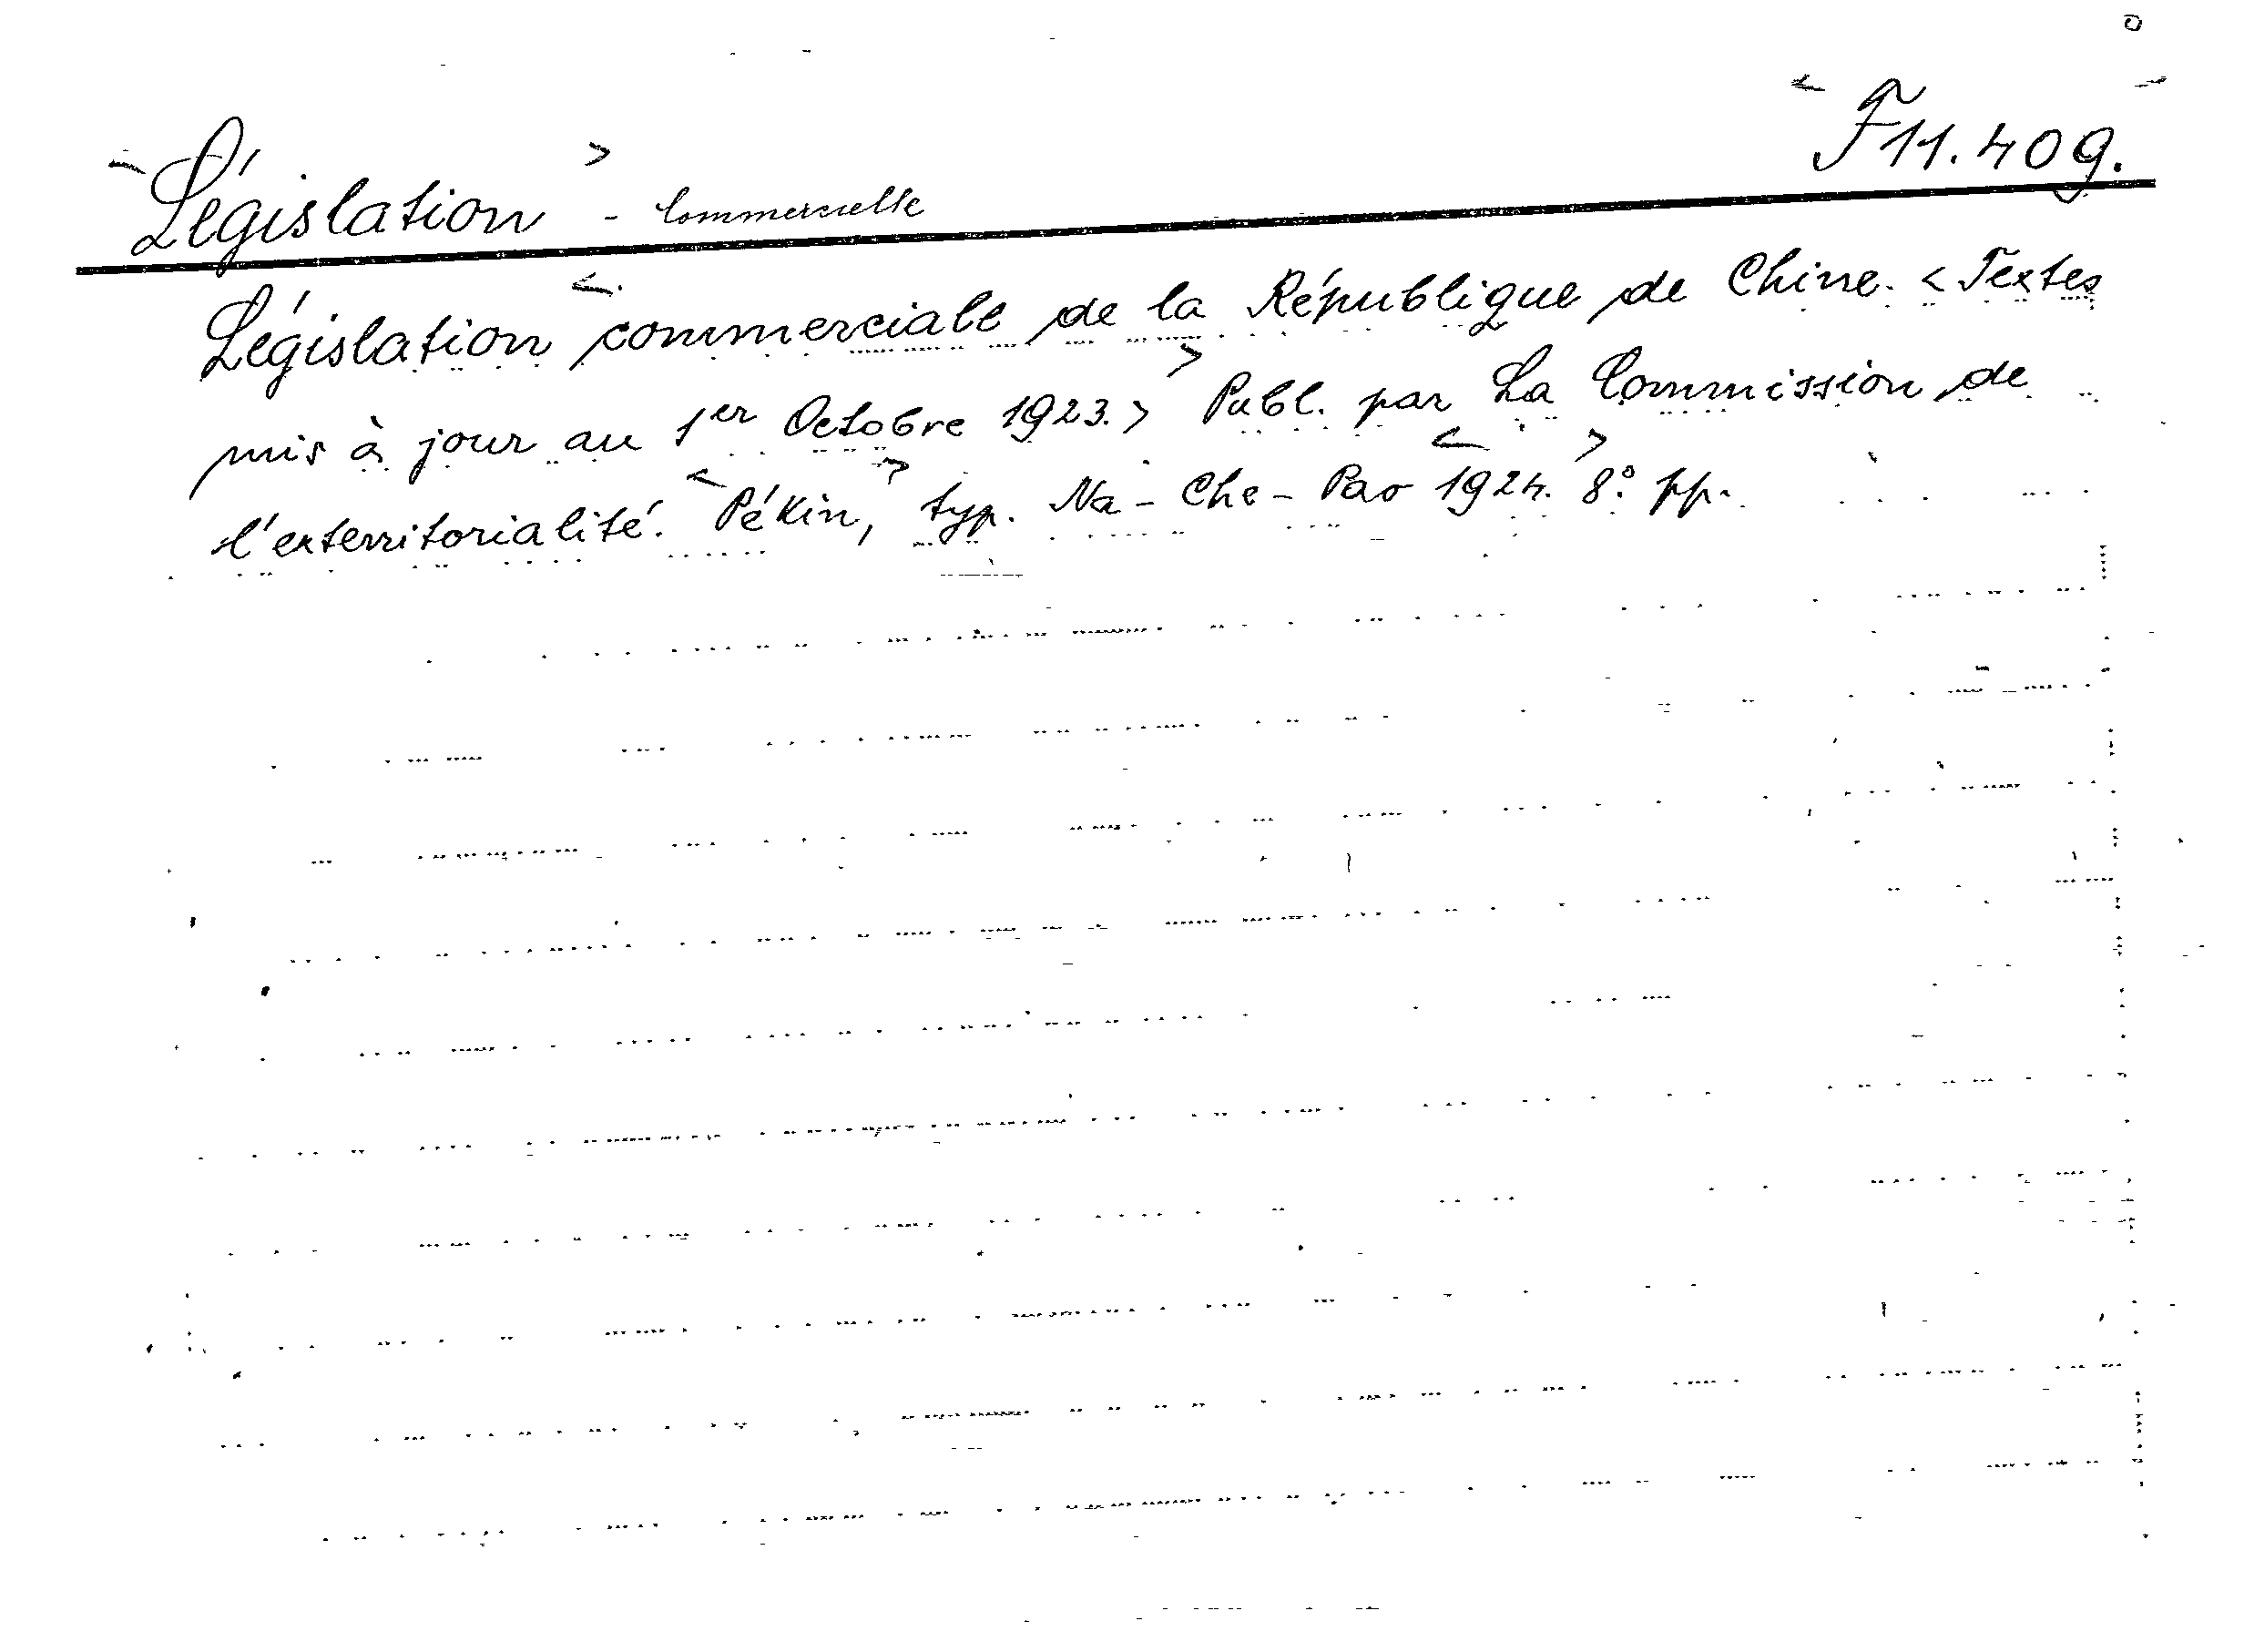 F 11.409.
Législation - Commercielle
Législation commerciale de la République de Chine. < Textes
mis à jour au 1er Octobre 1923. > Publ. par La Commission de
l'exterritorialité. Pékin, typ. Na-Che-Pao 1924. 8° pp.